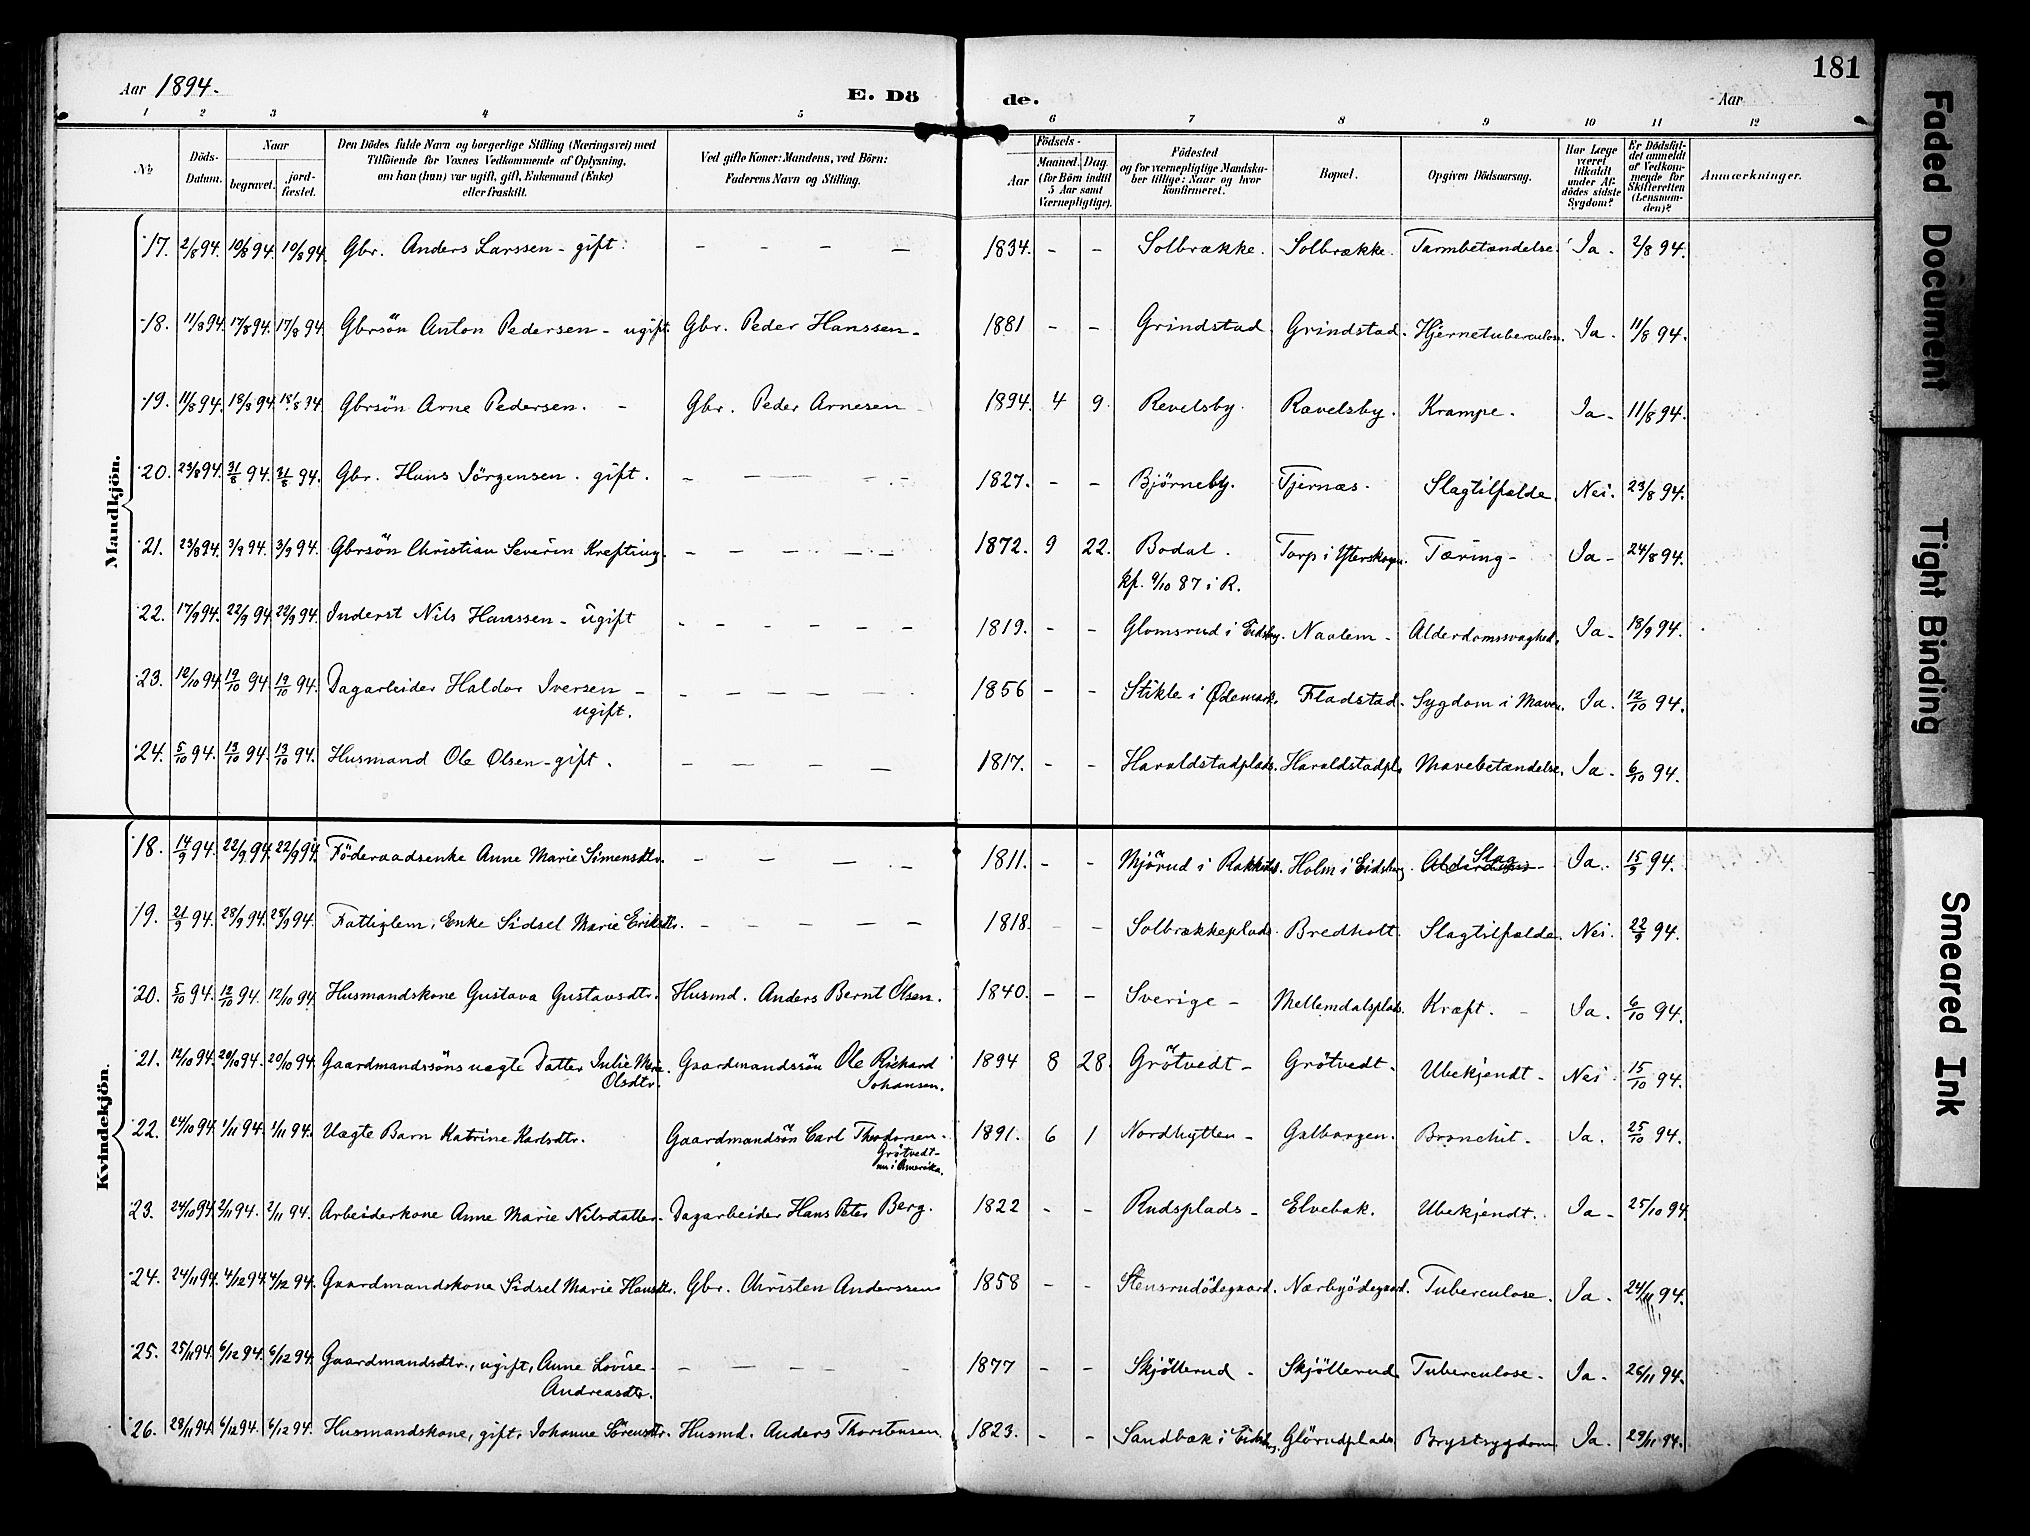 Aar 1894.
E. Döde.
Aar
181
1 2 3 4 5 6 7 8 9 10 11 12
No
Döds-Datum.
Naar
begravet.
jordfæstet.
Den Dödes fulde Navn og borgerlige Stilling (Næringsvei) med
Tilföiende for Voxnes Vedkommende af Oplysning,
om han (hun) var ugift, gift, Enkemand (Enke)
eller fraskilt.
Ved gifte Koner: Mandens, ved Börn:
Faderens Navn og Stilling.
Födsels-
Aar
Maaned. Dag.
(for Börn indtil
5 Aar samt
Værnepligtige).
Födested
og for værnepligtige Mandska-
ber tillige: Naar og hvor
konfirmeret.
Bopæl.
Opgiven Dödsaarsag.
Har Læge
været
tilkaldt
under Af-
dödes sidste
Sygdom?
Er Dödsfal-
det anmeldt
af Vedkom-
mende for
Skifteretten
(Lensman-
den)?
Anmærkninger.
Mandkjön.
17. 2/8 94. 10/8 94. 10/8 94. Gbr. Anders Larssen - gift. - - - - 1834. - - Solbrække. Solbrække. Tarmbetændelse. Ja. 2/8 94.
18. 11/8 94. 17/8 94. 17/8 94 Gbrsön Anton Pedersen - ugift. Gbr. Peder Hanssen - 1881 - - Grindstad. Grindstad. Hjernetuberculose. Ja. 11/8 94.
19. 11/8 94. 18/8 94 18/8 94 Gbrsön Arne Pedersen. - Gbr. Peder Arnesen 1894. 4 9. Revelsby. Ravelsby. Krampe. Ja - 11/8 94.
20. 23/8 94. 31/8 94. 31/8 94. Gbr. Hans Jörgensen. gift. - - - - 1827. - - Bjørneby. Tjernæs. Slagtilfælde. Nei. 23/8 94.
21. 23/8 94. 3/9 94. 3/9 94. Gbrsön Christian Severin Krefting. - - - - - 1872. 9 22. Bodal. Torp i Ytterskogn. Tæring - Ja - 24/8 94.
kf. 9/10 87 i R.
22. 17/9 94. 22/9 94. 22/9 94. Inderst Nils Hanssen - ugift - - - - - 1819. - - Glomsrud i Eidsbg. Navlem - Alderdomssvaghed. Ja - 18/9 94.
23. 12/10 94 19/10 94. 19/10 94. Dagarbeider Haldor Iversen - - - - - - 1856 - - Stikle i Ødemark. Fladstad. Sygdom i Maven. Ja. 12/10 94.
ugift.
24. 5/10 94. 13/10 94. 13/10 94. Husmand Ole Olsen - gift. - - - - 1817. - - Haraldstadplads. Haraldstadpl. Mavebetændelse. Ja - 6/10 94.
Kvindekjön.
18. 14/9 94. 22/9 94. 22/9 94. Föderaadsenke Anne Marie Simensdtr. - - - - 1811. - - Mjörud i Rakkestd. Holm i Eidsberg. Slag - Ja. 15/9 94.
19. 21/9 94. 28/9 94. 28/9 94. Fattiglem, Enke Sidsel Marie Eriksdtr. - - - - - 1818. - - Solbrækkeplads. Bredholt. Slagtilfælde. Nei. 22/9 94.
20. 5/10 94. 12/10 94. 12/10 94 Husmandskone Gustava Gustavsdtr. Husmd. Anders Bernt Olsen. 1840. - - Sverige - Mellemdalsplads. Kræft. - Ja. 6/10 94.
21. 12/10 94. 20/10 94. 20/10 94 Gaardmandssöns uægte Datter Julie Marie Gaardmandssön Ole Rickard 1894 8 28. Grötvedt - Grötvedt. Ubekjendt - Nei. 15/10 94.
Olsdtr. Johansen.
22. 24/10 94. 1/11 94. 1/11 94. Uægte Barn Katrine Karlsdtr. Gaardmandsön Carl Thodorsen - 1891. 6 1 Nordhytten - Galbargen. Bronchit. Ja. 25/10 94.
Grötvedt -
nu i Amerika.
23. 24/10 94 2/11 94. 2/11 94. Arbeiderkone Anne Marie Nilsdatter - Dagarbeider Hans Peter Berg. 1822 - - Rudsplads - Elvebak. Ubekjendt. Ja - 25/10 94.
24. 24/11 94. 4/12 94. 4/12 94. Gaardmandskone Sidsel Marie Hansdtr. Gbr. Christen Anderssen 1858 - - Stensrudödegaard. Nærbyödegaard. Tuberculose. Ja. 24/11 94.
25. 25/11 94. 6/12 94. 6/12 94. Gaardmandsdtr., ugift, Anne Lovise - - - - - 1877 - - Skjölterud - Skjölterud. Tuberculose. Ja. 26/11 94.
Andreasdtr.
26. 28/11 94. 6/12 94. 6/12 94. Husmandskone, gift, Johanne Sörensdtr. Husmd. Anders Thorstensen. 1823. - - Sandbæk i Eidsbg. Glörudplads Brystsygdom Ja. 29/11 94.
Faded Document
Tight Binding
Smeared Ink